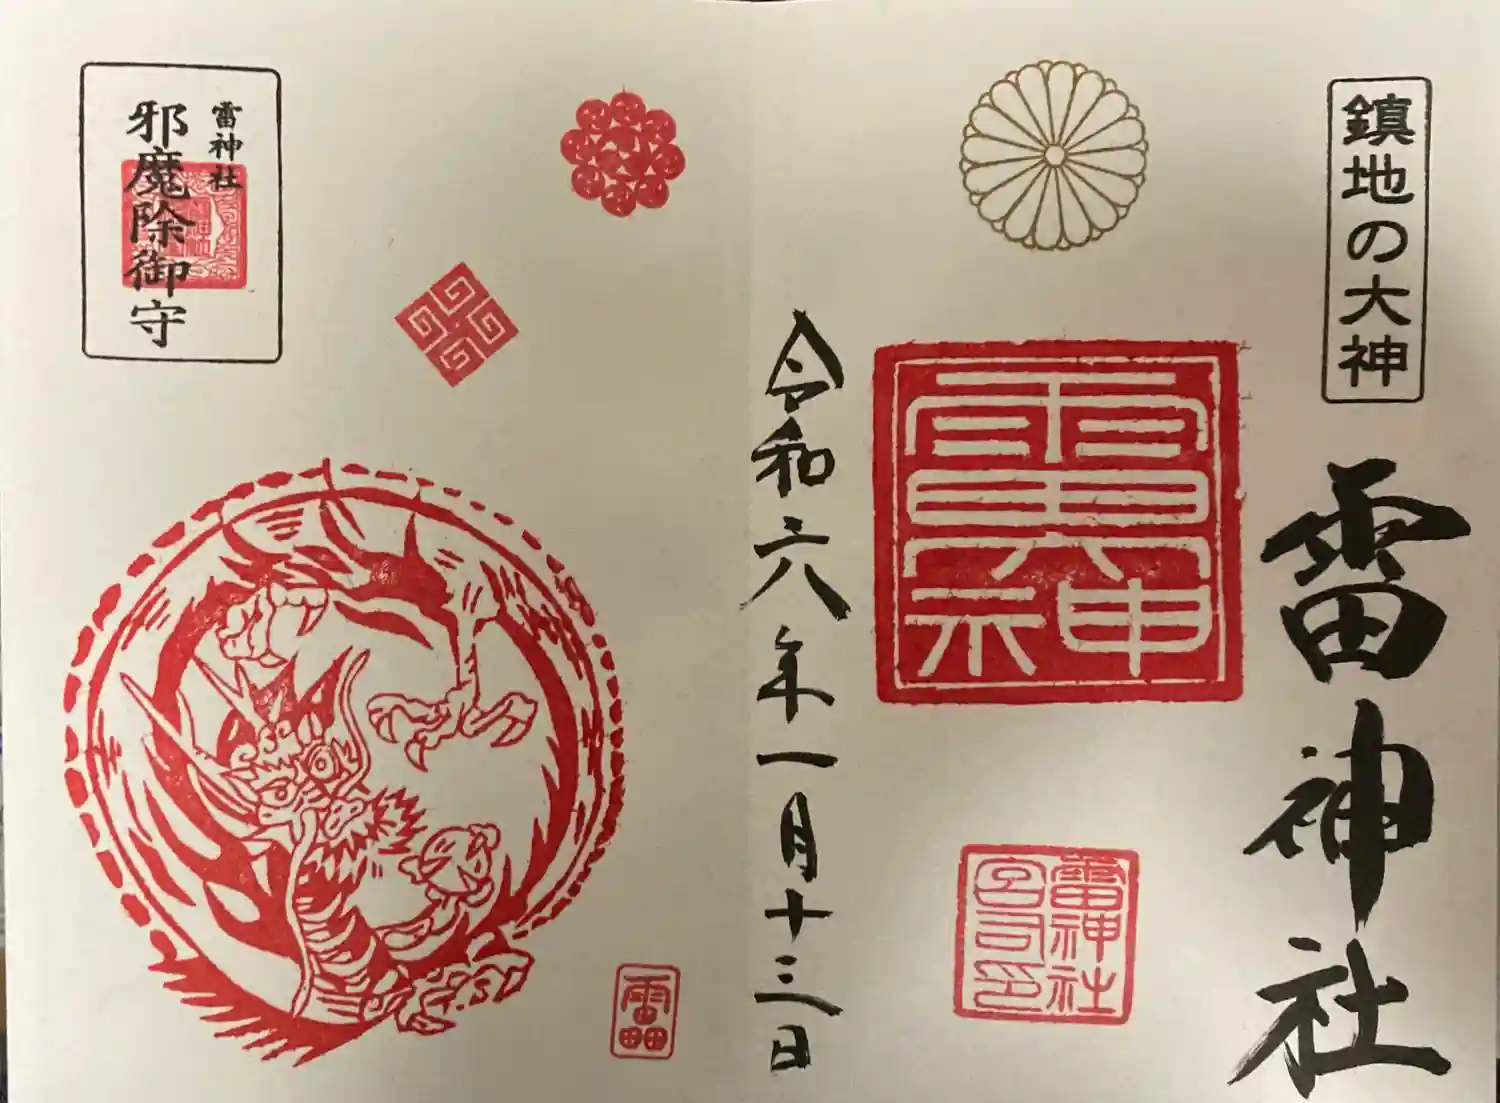 鎮地の大神
雷神社
雷神
雷神社
宮司印
令和六年一月十三日
雷神社
邪魔除御守